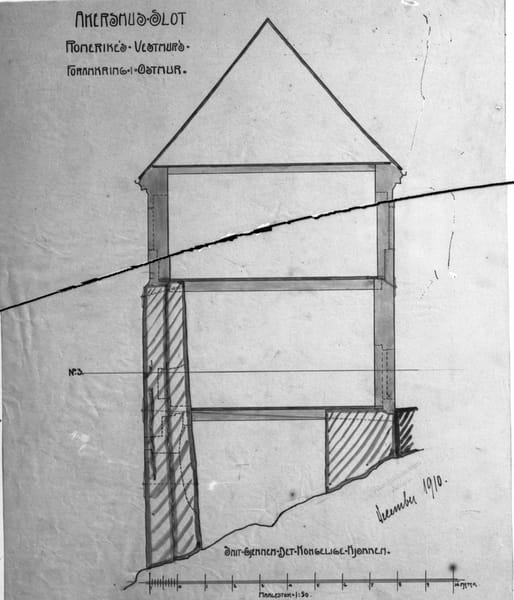 AKERSHUS-SLOT
ROMERIKE'S-VESTMUR'S-
FORANKRING-I-ØSTMUR.
No 3.
December 1910.
SNIT-GJENNEM-DET-KONGELIGE-KJØKKEN.
0 1 2 3 4 5 6 7 8 9 10 METER
MAALESTOK=1:50.